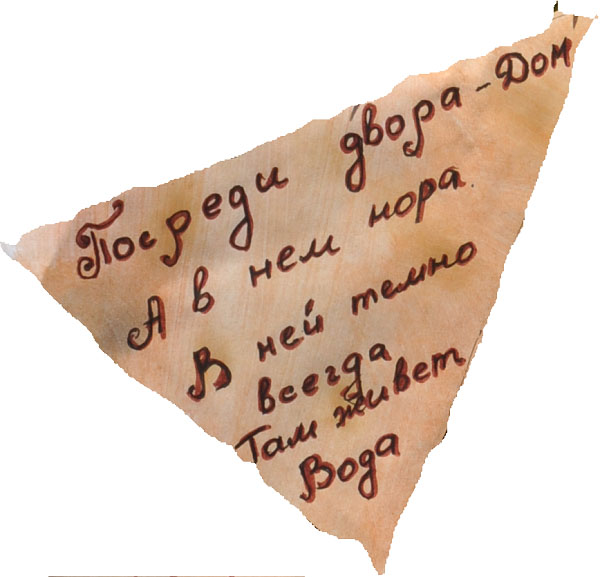 Посреди двора - Дом
А в нем нора.
В ней темно
всегда
Там живет
Вода